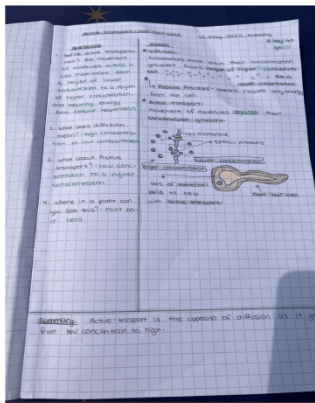 Active transport
12 May 2025 Monday
Questions
1. Define active transport:
- the movement
of molecules across a
cell membrane from
a region of lower
concentration to a region
of higher concentration
and requiring energy
from cellular respiration
2. What does diffusion
mean? - high concentra-
tion to low concentration
3. What about Active
transport? - low conc-
entration to a higher
concentration
4. where in a plant can
you see this? - Root ha-
ir cells
Notes
Diffusion:
Substances move down their concentration
gradient from a region of higher concentration
Lower concentration
Passive Process - doesnt require any energy
from the cell
Active transport:
movement of molecules against their
concentration gradient
cell membrane
special proteins
Lower concentration
higher concentration
lots of mitochon-
dria to help
with active transport
root hair cell
Summary: Active transport is the opposite of diffusion as it g
from low concentrain to high.